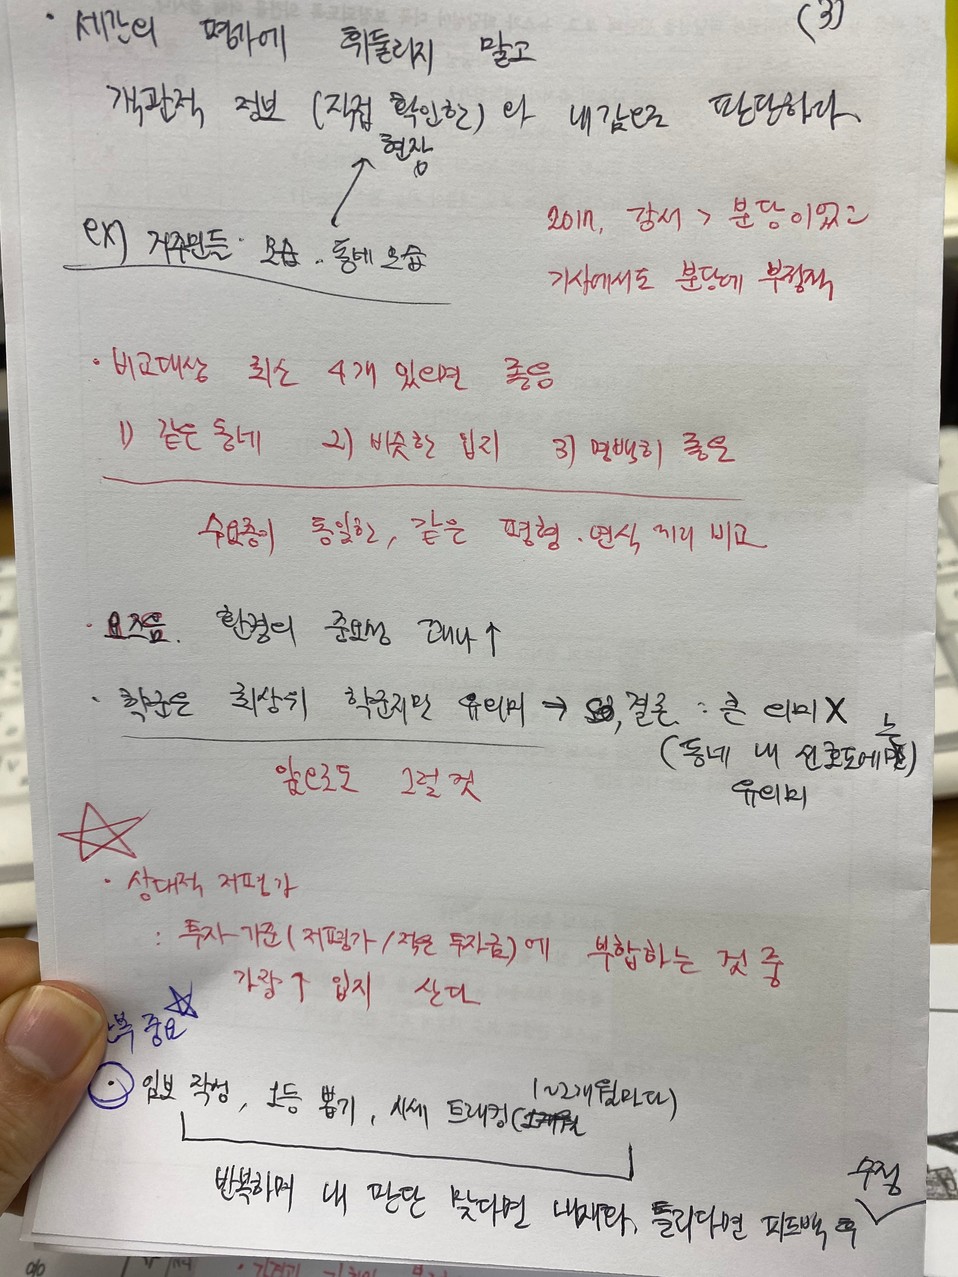 (3)
· 세간의 평가에 휘둘리지 말고
객관적 정보 (직접 확인한) 와 내 감으로 판단하다.
현장
ex) 거주민들 모습 · 동네 모습
2017, 강서 > 분당이었고
기사에서도 분당에 부정적
· 비교대상 최소 4개 있으면 좋음
1) 같은 동네 2) 비슷한 입지 3) 명백히 좋은
수요층이 동일한, 같은 평형 · 연식 끼리 비교
· 요즈음. 환경의 중요성 ↑
· 학군은 최상위 학군지만 유의미 → 결론 : 큰 의미 X
(동네 내 선호도에는)
유의미
앞으로도 그럴 것
· 상대적 저평가
: 투자기준 (저평가 / 적은 투자금) 에 부합하는 것 중
가장 ↑ 입지 산다
중요
임보 작성, 1등 뽑기, 시세 트래킹 (1~2개월마다)
반복하며 내 판단 맞다면 내재화, 틀리다면 피드백 후
수정